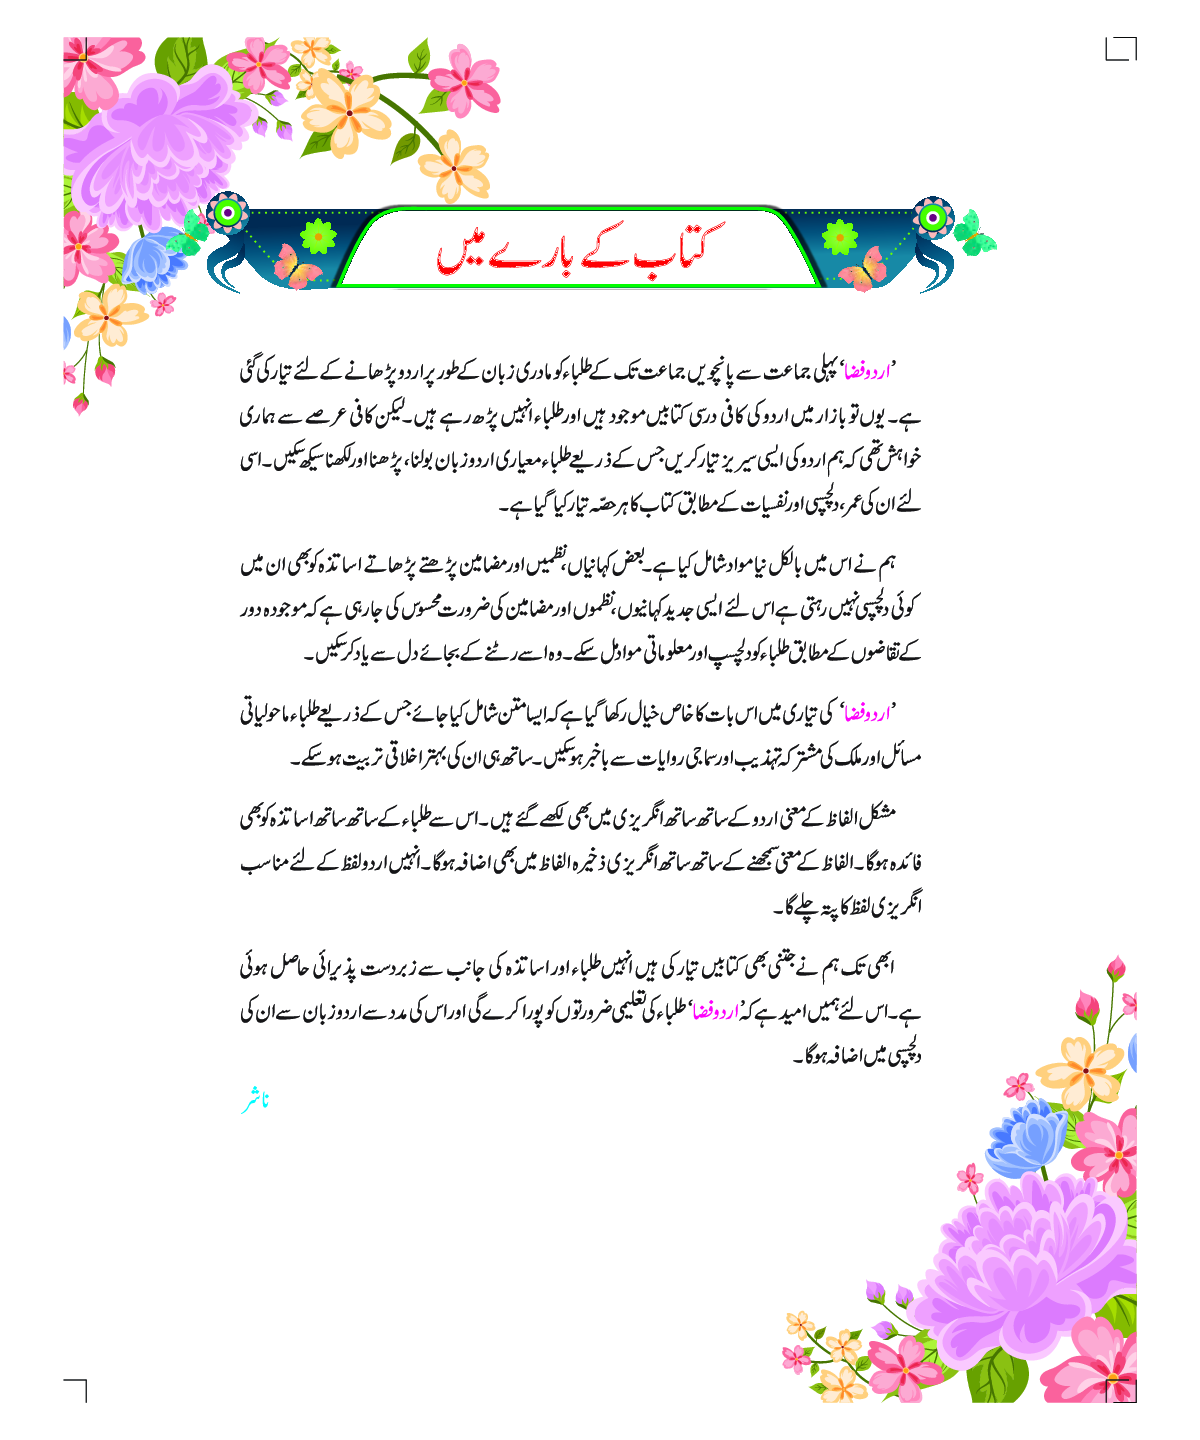 کتاب کے بارے میں
’اردو فضا‘ پہلی جماعت سے پانچویں جماعت تک کے طلباء کو مادری زبان کے طور پر اردو پڑھانے کے لئے تیار کی گئی
ہے۔ یوں تو بازار میں اردو کی کافی درسی کتابیں موجود ہیں اور طلباء انہیں پڑھ رہے ہیں۔ لیکن کافی عرصے سے ہماری
خواہش تھی کہ ہم اردو کی ایسی سیریز تیار کریں جس کے ذریعے طلباء معیاری اردو زبان بولنا، پڑھنا اور لکھنا سیکھ سکیں۔ اسی
لئے ان کی عمر، دلچسپی اور نفسیات کے مطابق کتاب کا ہر حصّہ تیار کیا گیا ہے۔
ہم نے اس میں بالکل نیا مواد شامل کیا ہے۔ بعض کہانیاں، نظمیں اور مضامین پڑھتے پڑھاتے اساتذہ کو بھی ان میں
کوئی دلچسپی نہیں رہتی ہے اس لئے ایسی جدید کہانیوں، نظموں اور مضامین کی ضرورت محسوس کی جا رہی ہے کہ موجودہ دور
کے تقاضوں کے مطابق طلباء کو دلچسپ اور معلوماتی مواد مل سکے۔ وہ اسے رٹنے کے بجائے دل سے یاد کر سکیں۔
’اردو فضا‘ کی تیاری میں اس بات کا خاص خیال رکھا گیا ہے کہ ایسا متن شامل کیا جائے جس کے ذریعے طلباء ماحولیاتی
مسائل اور ملک کی مشترکہ تہذیب اور سماجی روایات سے باخبر ہو سکیں۔ ساتھ ہی ان کی بہتر اخلاقی تربیت ہو سکے۔
مشکل الفاظ کے معنی اردو کے ساتھ ساتھ انگریزی میں بھی لکھے گئے ہیں۔ اس سے طلباء کے ساتھ ساتھ اساتذہ کو بھی
فائدہ ہوگا۔ الفاظ کے معنی سمجھنے کے ساتھ ساتھ انگریزی ذخیرہ الفاظ میں بھی اضافہ ہوگا۔ انہیں اردو لفظ کے لئے مناسب
انگریزی لفظ کا پتہ چلے گا۔
ابھی تک ہم نے جتنی بھی کتابیں تیار کی ہیں انہیں طلباء اور اساتذہ کی جانب سے زبردست پذیرائی حاصل ہوئی
ہے۔ اس لئے ہمیں امید ہے کہ ’اردو فضا‘ طلباء کی تعلیمی ضرورتوں کو پورا کرے گی اور اس کی مدد سے اردو زبان سے ان کی
دلچسپی میں اضافہ ہوگا۔
ناشر